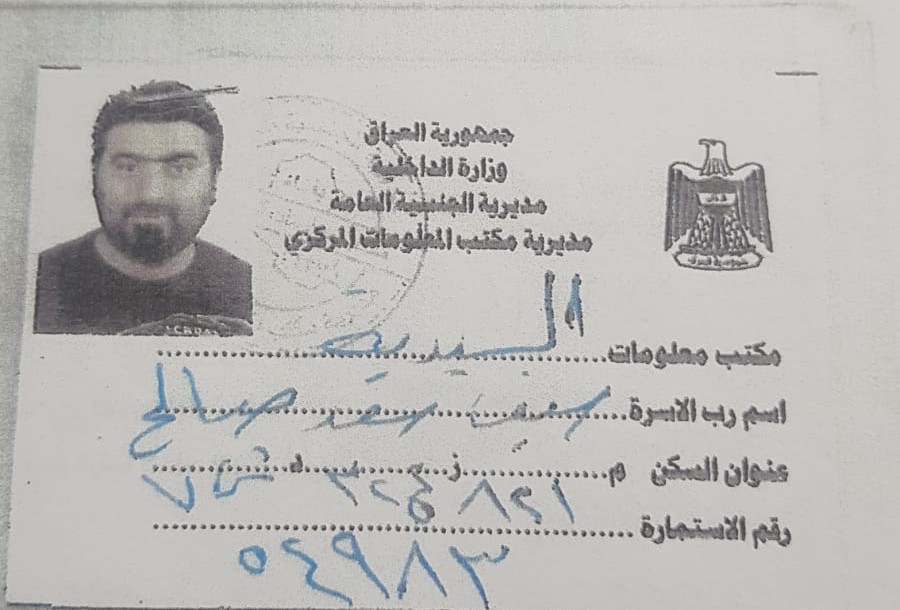 جمهورية العراق
وزارة الداخلية
مديرية الجنسية العامة
مديرية مكتب المعلومات المركزي
مكتب معلومات السيدية
اسم رب الاسرة سعد صالح
عنوان السكن م ز د
رقم الاستمارة
٥٤٩٨٣